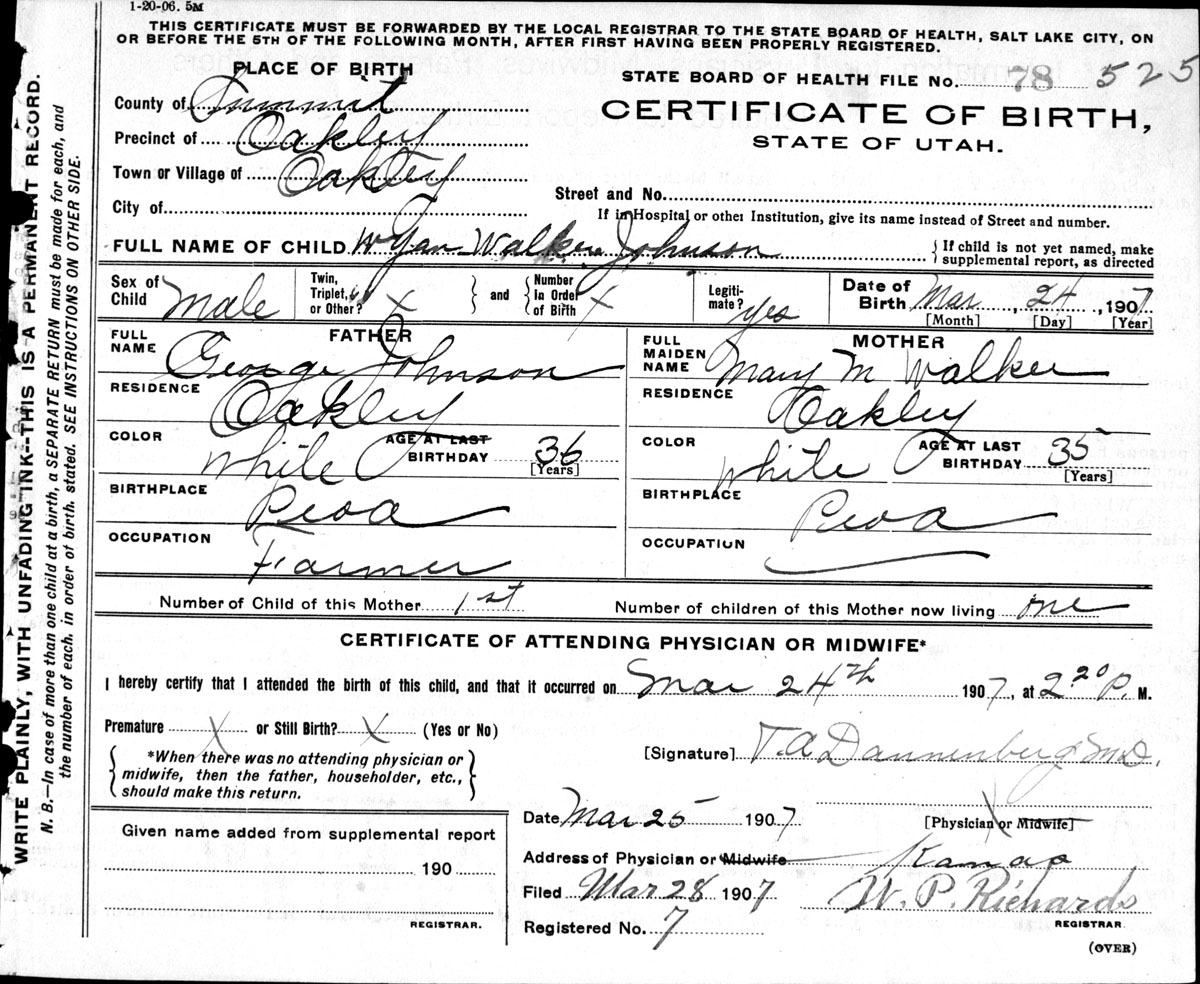 1-20-06. 5M
THIS CERTIFICATE MUST BE FORWARDED BY THE LOCAL REGISTRAR TO THE STATE BOARD OF HEALTH, SALT LAKE CITY, ON
OR BEFORE THE 5TH OF THE FOLLOWING MONTH, AFTER FIRST HAVING BEEN PROPERLY REGISTERED.
WRITE PLAINLY, WITH UNFADING INK--THIS IS A PERMANENT RECORD.
N. B.—In case of more than one child at a birth, a SEPARATE RETURN must be made for each, and
the number of each, in order of birth, stated. SEE INSTRUCTIONS ON OTHER SIDE.
PLACE OF BIRTH
County of Summit
Precinct of Oakley
Town or Village of Oakley
City of
STATE BOARD OF HEALTH FILE No. 78 525
CERTIFICATE OF BIRTH,
STATE OF UTAH.
Street and No.
If in Hospital or other Institution, give its name instead of Street and number.
FULL NAME OF CHILD Wyan Walker Johnson
{ If child is not yet named, make
supplemental report, as directed
Sex of Child Male
Twin, Triplet, or Other? X } and { Number in Order of Birth X
Legiti-mate? yes
Date of Birth Mar 24, 1907
[Month] [Day] [Year]
FATHER
FULL NAME George Johnson
RESIDENCE Oakley
COLOR White
AGE AT LAST BIRTHDAY 36
[Years]
BIRTHPLACE Peoa
OCCUPATION Farmer
MOTHER
FULL MAIDEN NAME Mary M Walker
RESIDENCE Oakley
COLOR White
AGE AT LAST BIRTHDAY 35
[Years]
BIRTHPLACE Peoa
OCCUPATION
Number of Child of this Mother 1st
Number of children of this Mother now living one
CERTIFICATE OF ATTENDING PHYSICIAN OR MIDWIFE*
I hereby certify that I attended the birth of this child, and that it occurred on Mar 24th 1907, at 2.20 P. M.
Premature X or Still Birth? X (Yes or No)
{ *When there was no attending physician or
midwife, then the father, householder, etc.,
should make this return. }
[Signature] T. A Dannenberg M.D.
[Physician or Midwife]
Date Mar 25 1907
Address of Physician or Midwife Kamas
Filed Mar 28 1907 W. P. Richards
REGISTRAR.
Registered No. 7
Given name added from supplemental report
190
REGISTRAR.
(OVER)